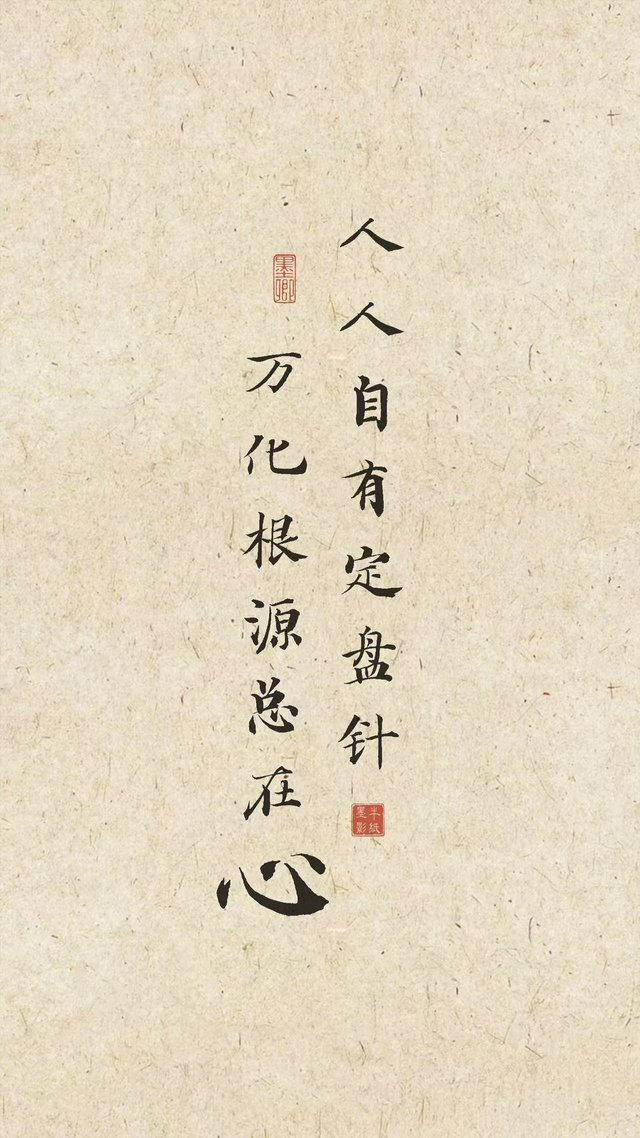 人人自有定盘针
半纸墨影
墨卿
万化根源总在心